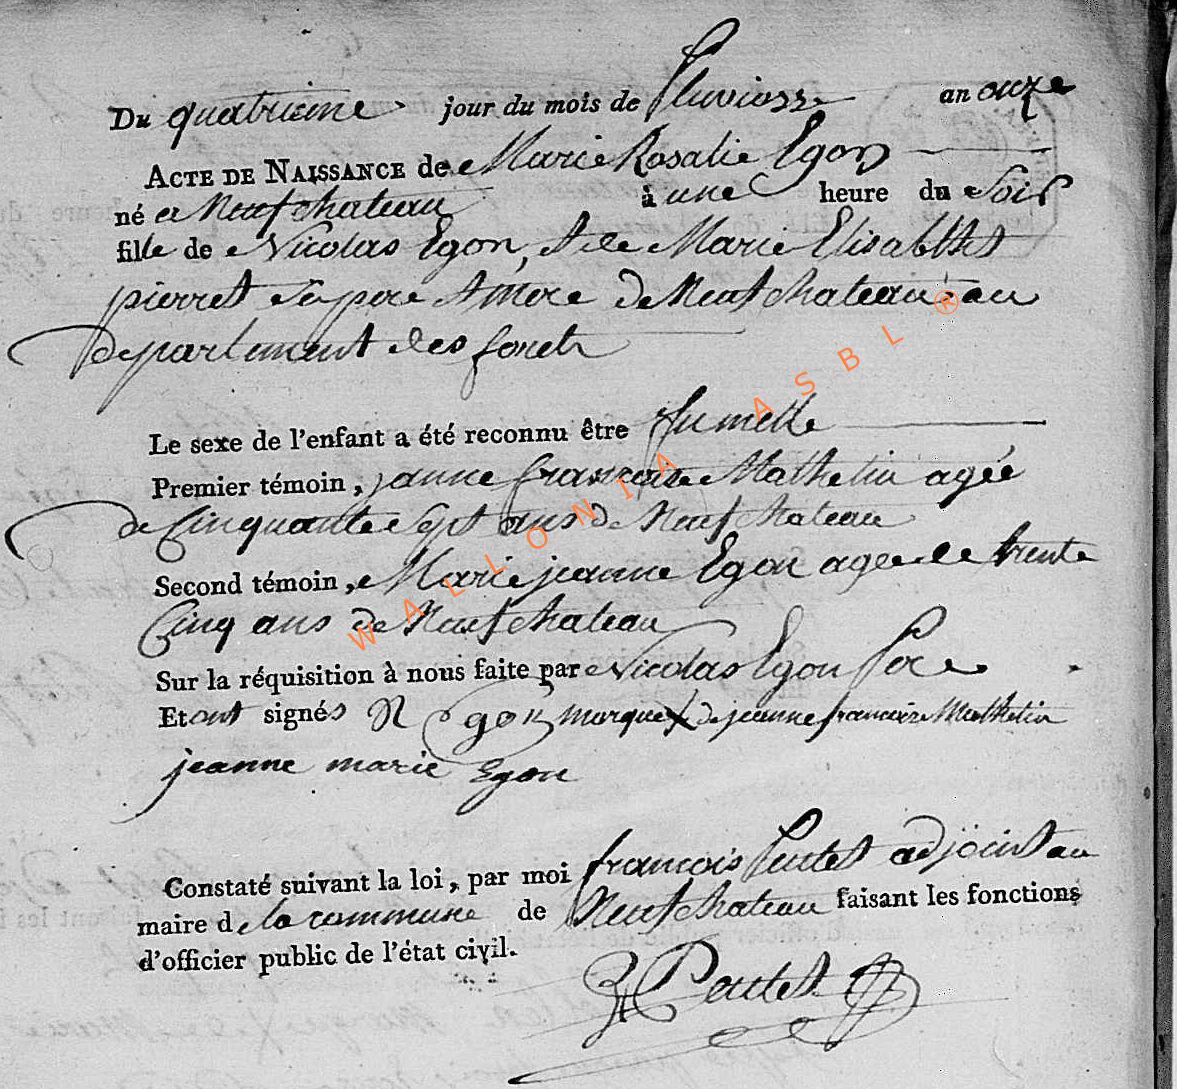 Du quatrieme jour du mois de pluviosse an onze
ACTE DE NAISSANCE de Marie Rosalie Egon
né e Neufchateau à une heure du Soir
fille de Nicolas Egon, et de Marie Elisabthet
pierret Ses pere et mere de Neufchateau au
departement des forets
Le sexe de l'enfant a été reconnu être fumelle
Premier témoin, janne francoise Mathelin agée
de Cinquante Sept ans de Neufchateau
Second témoin, Marie jeanne Egon agee de trente
Cinq ans de Neufchateau
Sur la réquisition à nous faite par Nicolas Egon pere
Et ont signés N Egon marque X de jeanne francoise Mathelin
jeanne marie Egon
Constaté suivant la loi, par moi francois Poutet adjoint au
maire de la commune de Neufchateau faisant les fonctions
d'officier public de l'état civil.
Poutet
WALLONIA ASBL ®